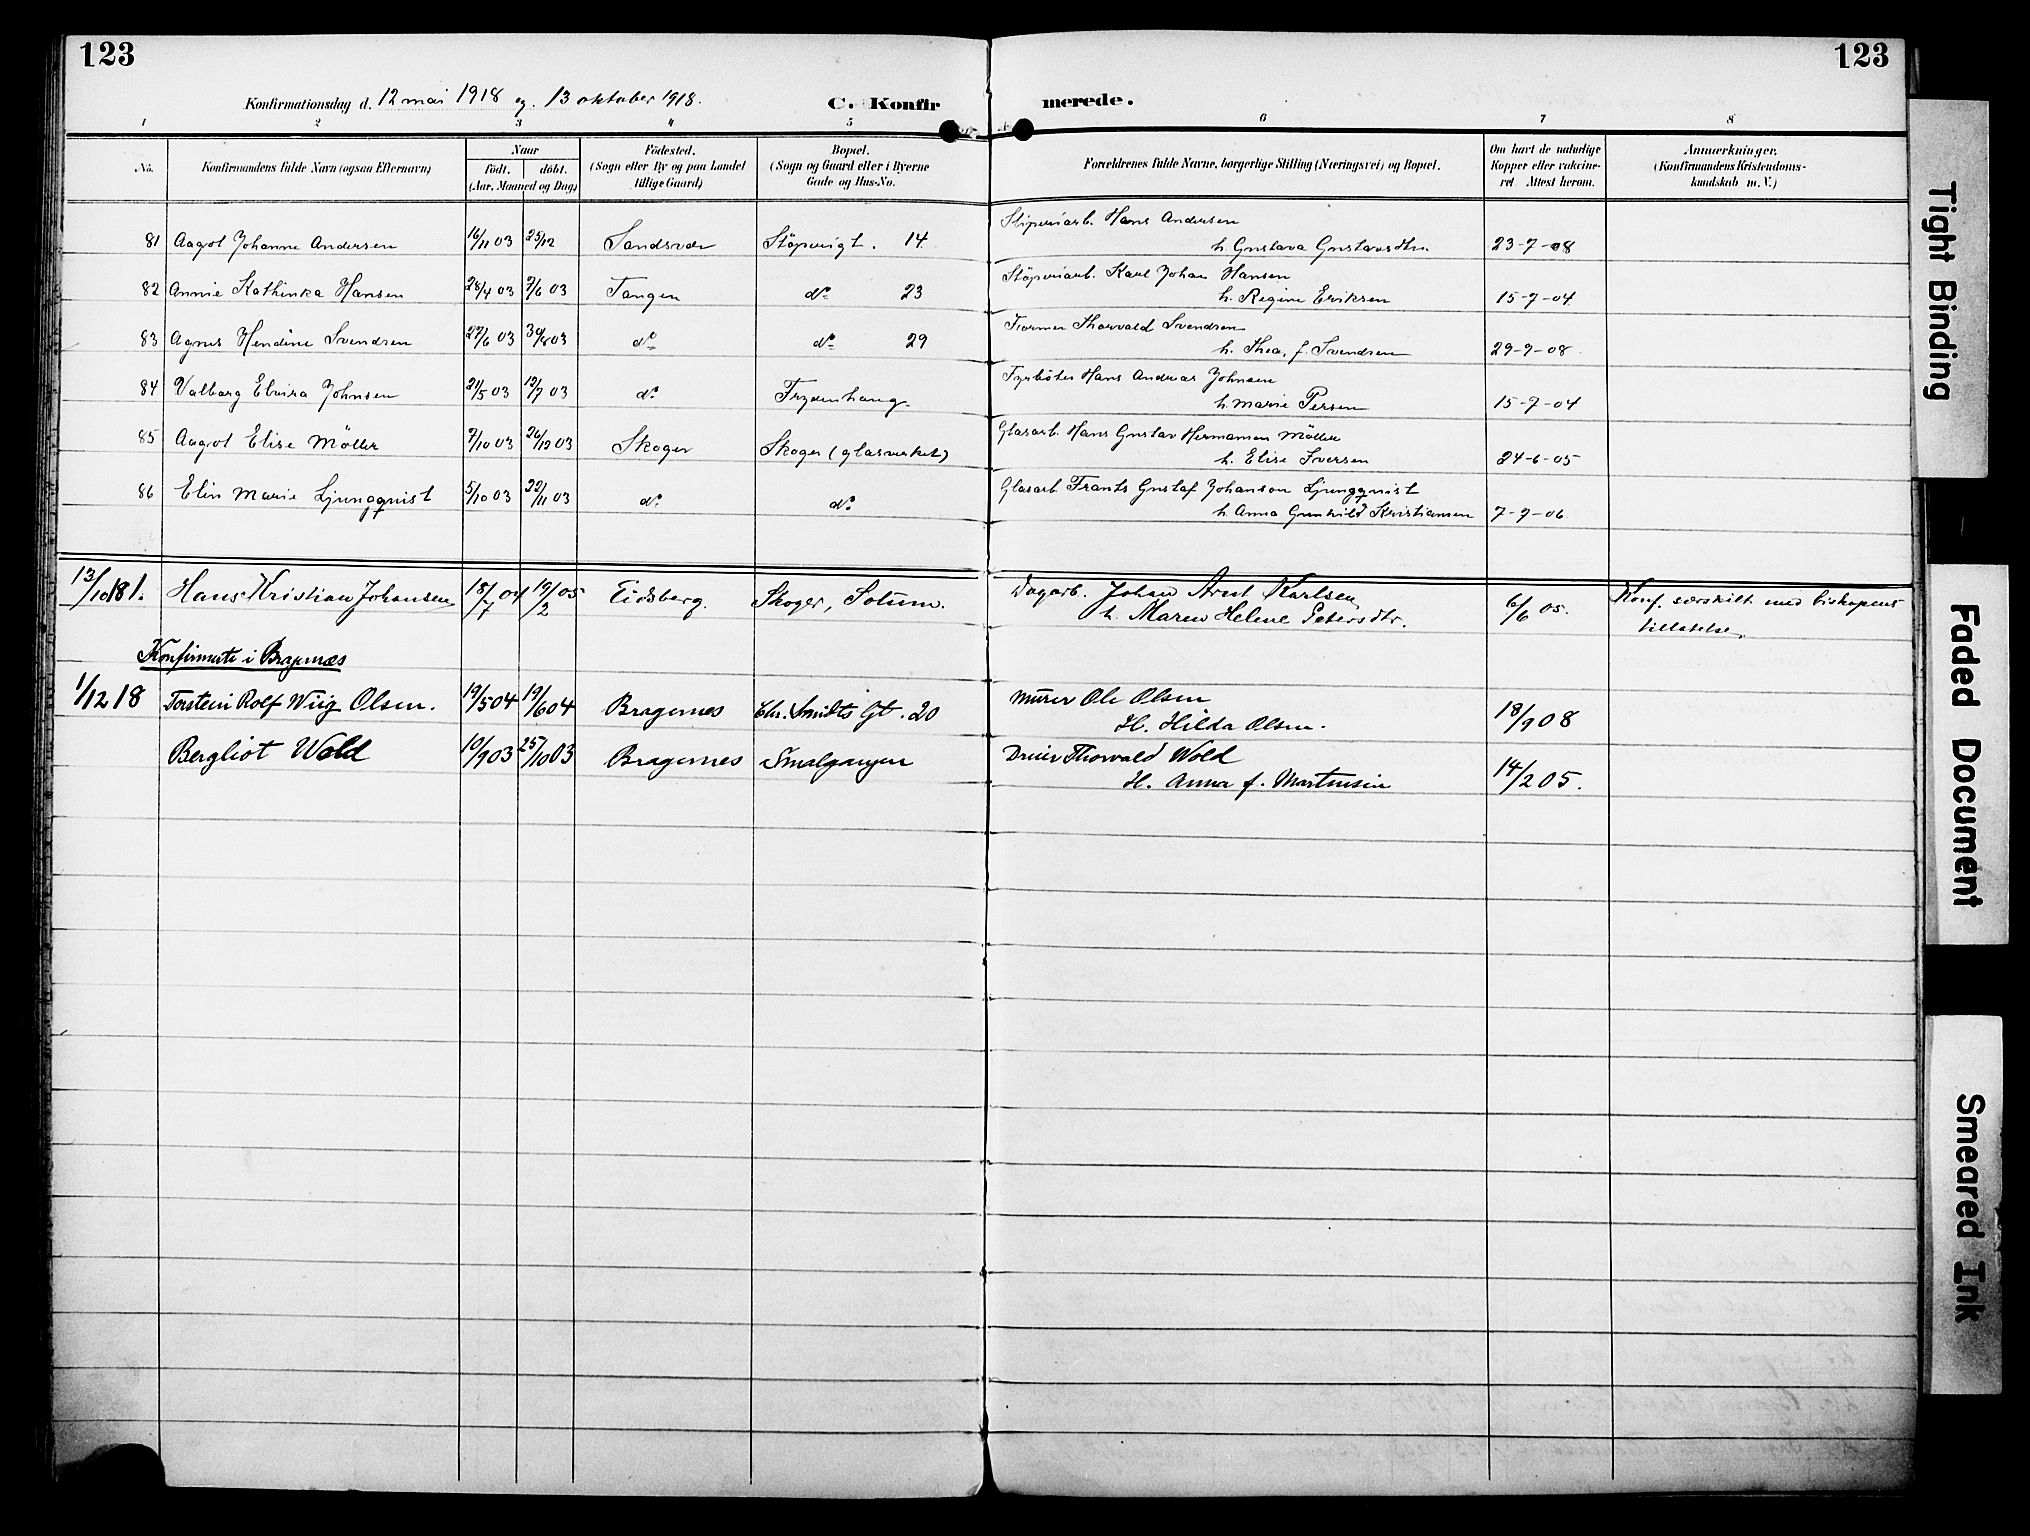 123
123
Konfirmationsdag d. 12 mai 1918 og 13 oktober 1918.
C. Konfirmerede.
1 2 3 4 5 6 7 8
No.
Konfirmandens fulde Navn (ogsaa Efternavn)
Naar
födt. döbt.
(Aar, Maaned og Dag)
Födested.
(Sogn eller By og paa Landet
tillige Gaard)
Bopæl.
(Sogn og Gaard eller i Byerne
Gade og Hus-No.
Forældrenes fulde Navne, borgerlige Stilling (Næringsvei) og Bopæl.
Om havt de naturlige
Kopper eller vakcine-
ret Attest herom.
Anmærkninger.
(Konfirmandens Kristendoms-
kundskab m. V.)
81 Aagot Johanne Andersen 16/11 03 25/12 Sandsvær Støperigt. 14 Støperiarb. Hans Andersen
h. Gustava Gustavsdtr. 23-7-08
82 Annie Kathinka Hansen 28/4 03 7/6 03 Tangen do 23 Støperiarb. Karl Johan Hansen
h. Regine Eriksen 15-7-04
83 Agnes Hendine Svendsen 27/6 03 30/8 03 do do 29 Former Thorvald Svendsen
h. Thea, f. Svendsen 29-9-08
84 Valborg Elvira Johnsen 21/5 03 12/7 03 do Frydenhaug. Fyrbøter Hans Andreas Johnsen
h. Marie Persen 15-7-04
85 Aagot Elise Möller 7/10 03 26/12 03 Skoger Skoger (glasverket) Glasarb. Hans Gustav Hermansen Möller
h. Elise Iversen 24-6-05
86 Elin Marie Ljungqvist 5/10 03 22/11 03 do do Glasarb. Frants Gustaf Johanson Ljungqvist
h. Anna Gunhild Kristiansen 7-9-06
13/10 18 1. Hans Kristian Johansen 18/7 04 19/2 05 Eidsberg. Skoger, Solum. Dagarb. Johan Arnt Karlsen
h. Maren Helene Petersdtr. 6/6 05. Konf. særskilt med biskopens
tillatelse.
Konfirmerte i Bragernæs
1/12 18 Torstein Rolf Wiig Olsen. 19/5 04 19/6 04 Bragernes Chr. Smidts Gt. 20 Murer Ole Olsen
H. Hilda Olsen. 18/9 08
Bergliot Wold 10/9 03 25/10 03 Bragernes Smalgangen Thorvald Wold
H. Anna f. Martinsen 14/2 05.
Tight Binding
Faded Document
Smeared Ink